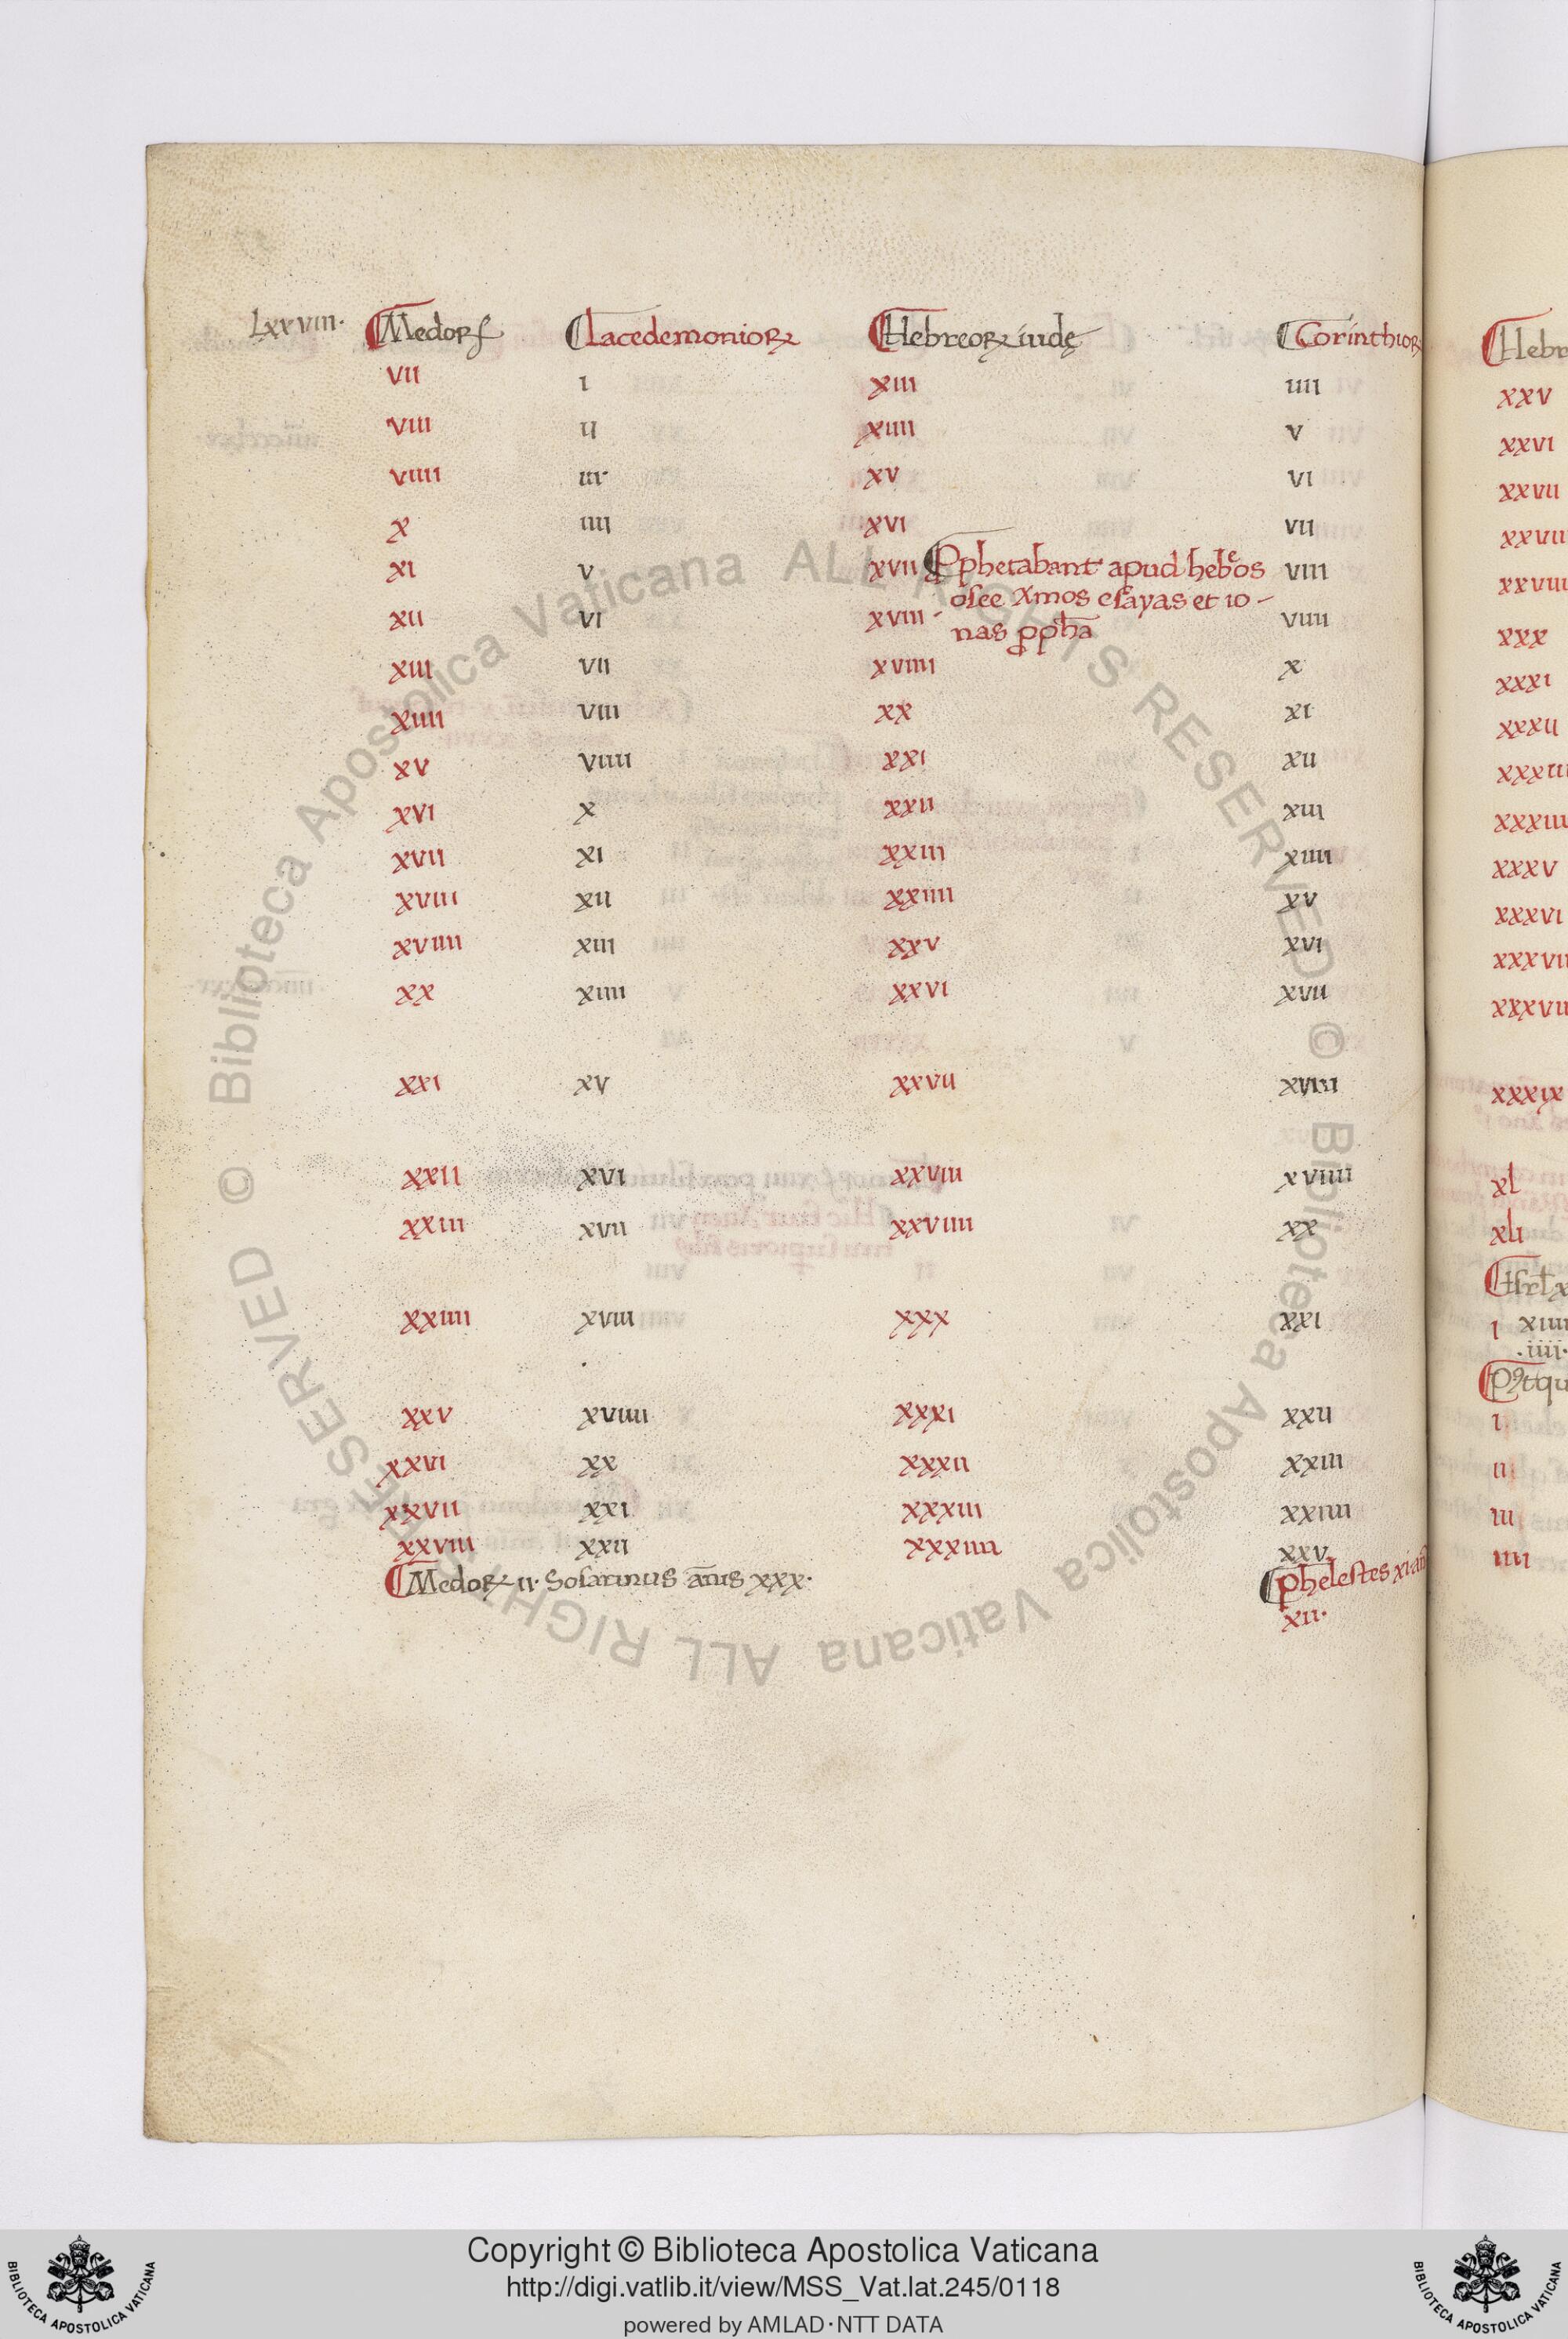 Lxxviii· Medorꝭ Lacedemonioꝝ Hebreoꝝ iudę Corinthioꝝ Hebr
VII I XIII IIII XXV
VIII II XIIII V XXVI
VIIII III XV VI XXVII
X IIII XVI VII
XI V XVII Pphetabant apud hebeos VIII
osee Amos esayas et io-
XII VI XVIII VIIII
nas ꝓpha
XIII VII XVIIII X XXX
XIIII VIII XX XI XXXI
XV VIIII XXI XII XXXII
XVI X XXII XIII
XVII XI XXIII XIIII
XVIII XII XXIIII XV XXXV
XVIIII XIII XXV XVI XXXVI
XX XIIII XXVI XVII
XXI XV XXVII XVIII XXXIX
XXII XVI XXVIII XVIIII XL
XXIII XVII XXVIIII XX XLI
XXIIII XVIII XXX XXI I
.iiii.
XXV XVIIII XXXI XXII I
XXVI XX XXXII XXIII II
XXVII XXI XXXIII XXIIII III
XXVIII XXII XXXIIII XXV IIII
Medoꝝ II· Sosarmus ānis xxx· phelestes xi
XII·
© Biblioteca Apostolica Vaticana ALL RIGHTS RESERVED © Biblioteca Apostolica Vaticana ALL RIGHTS RESERVED
Copyright © Biblioteca Apostolica Vaticana
http://digi.vatlib.it/view/MSS_Vat.lat.245/0118
powered by AMLAD·NTT DATA
BIBLIOTECA APOSTOLICA VATICANA
BIBLIOTECA APOSTOLICA VATICANA